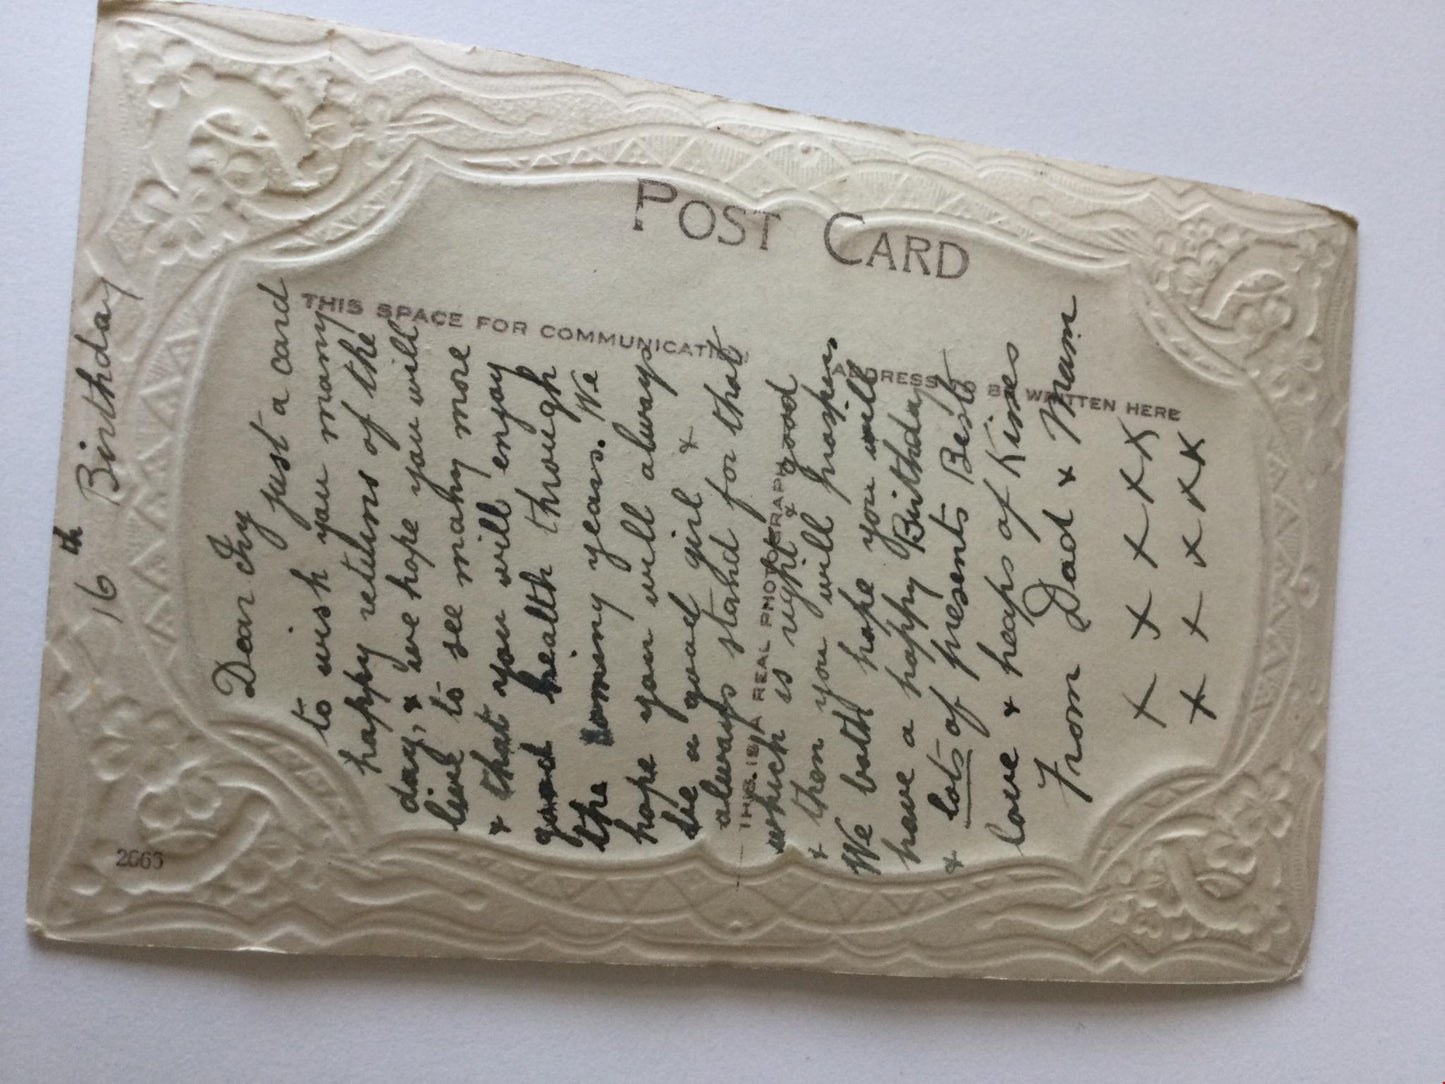 16th Birthday
POST CARD
THIS SPACE FOR COMMUNICATION
ADDRESS TO BE WRITTEN HERE
THIS IS A REAL PHOTOGRAPH
2665
Dear Ivy
just a card
to wish you many
happy returns of the
day, & we hope you will
live to see many more
& that you will enjoy
good health through
the coming years. We
hope you will always
be a good girl &
always stand for that
which is right & good
& then you will prosper,
We both hope you will
have a happy Birthday
& lots of presents Best
love & heaps of Kisses
From Dad & Mam
x x x x x
x x x x x